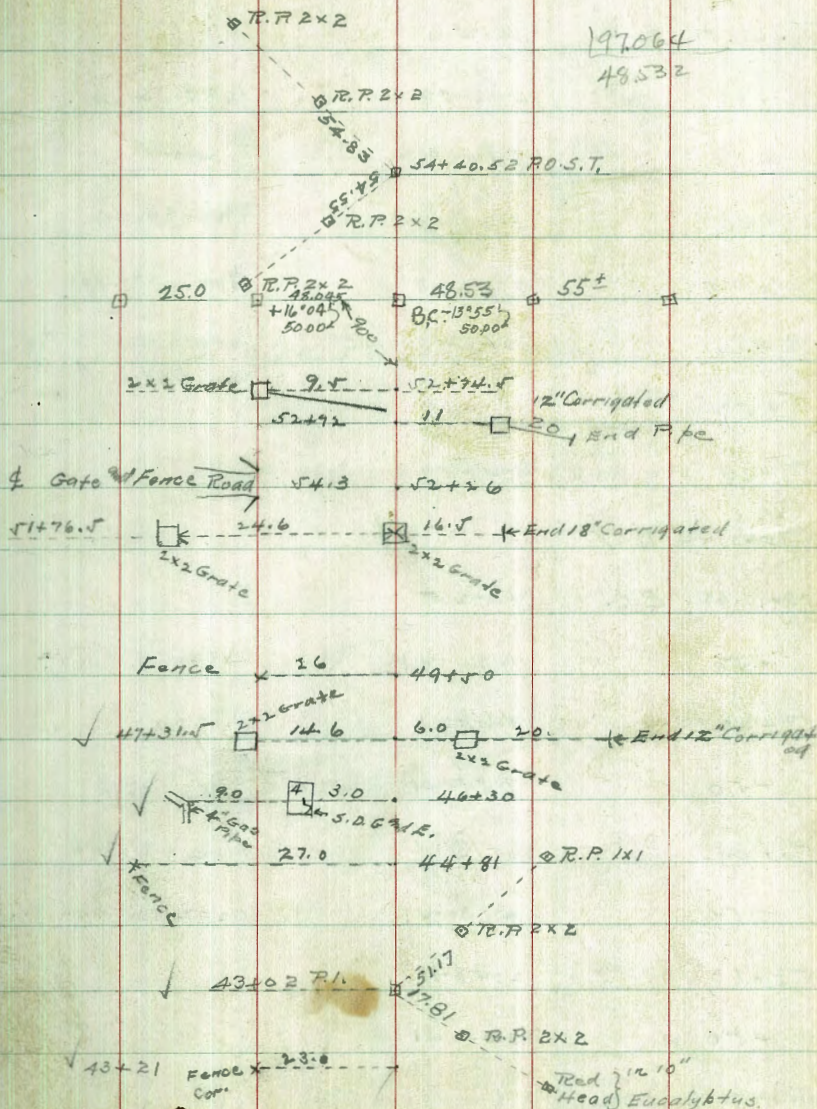 R.P. 2×2
197.064
48.532
R.P. 2×2
54.83
54+40.52 P.O.S.T.
54.55
R.P. 2×2
R.P. 2×2
25.0 48.045 48.53 55±
+16°04' B.C. -13°55'
50.00 50.00
900
2×2 Grate 9.5 52+74.5
12" Corrigated
52+92 11 20 End Pipe
℄ Gate and Fence Road 54.3 52+26
51+76.5 24.6 16.5 End 18" Corrigated
2×2 Grate 2×2 Grate
Fence 26 49+50
2×2 Grate
47+31.5 14.6 6.0 20. End 12" Corrigated
2×2 Grate
9.0 4 3.0 46+30
4" Gas Pipe S.D.G and E.
27.0 44+81 R.P. 1×1
Fence
R.P. 2×2
51.17
43+02 P.I.
17.81
R.P. 2×2
43+21 Fence Cor. 23.0
Red Head } in 10" Eucalyptus.